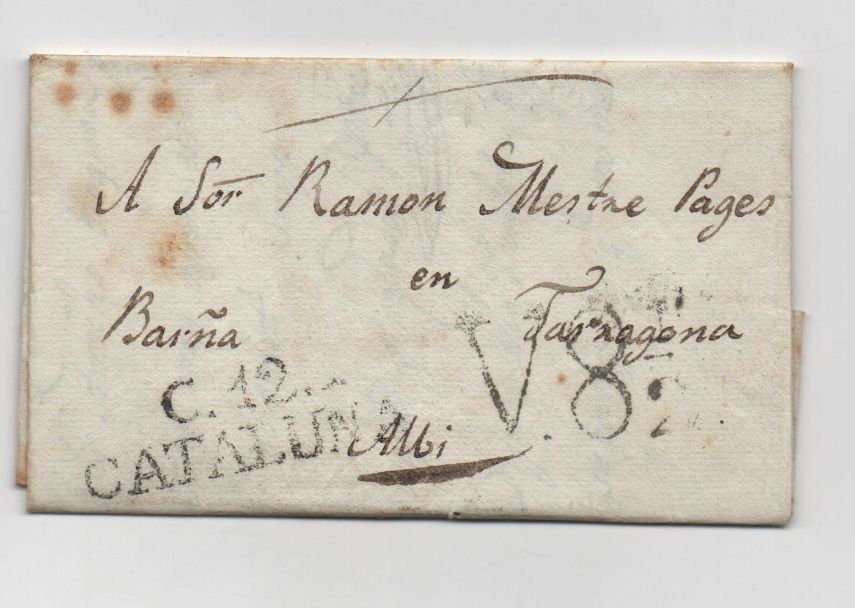 A Sor Ramon Mestre Pages
en
Barña Tarragona
V.8
C. 12.
CATALUÑA
Albi